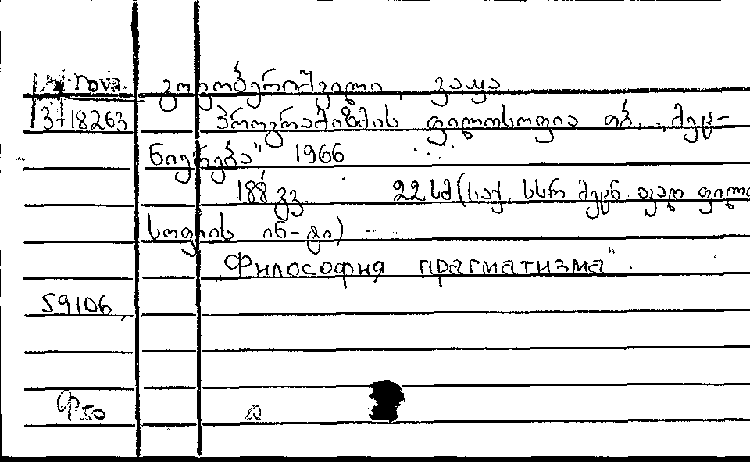 nova გოგობერიშვილი, ვაჟა
3718263 პროგრამიზმის ფილოსოფია თბ. „მეც-
ნიერება" 1966
188 გვ. 22 სმ (საქ. სსრ მეცნ. აკად ფილო
სოფიის ინ-ტი)
„Философия прагматизма"
59106
Ф50